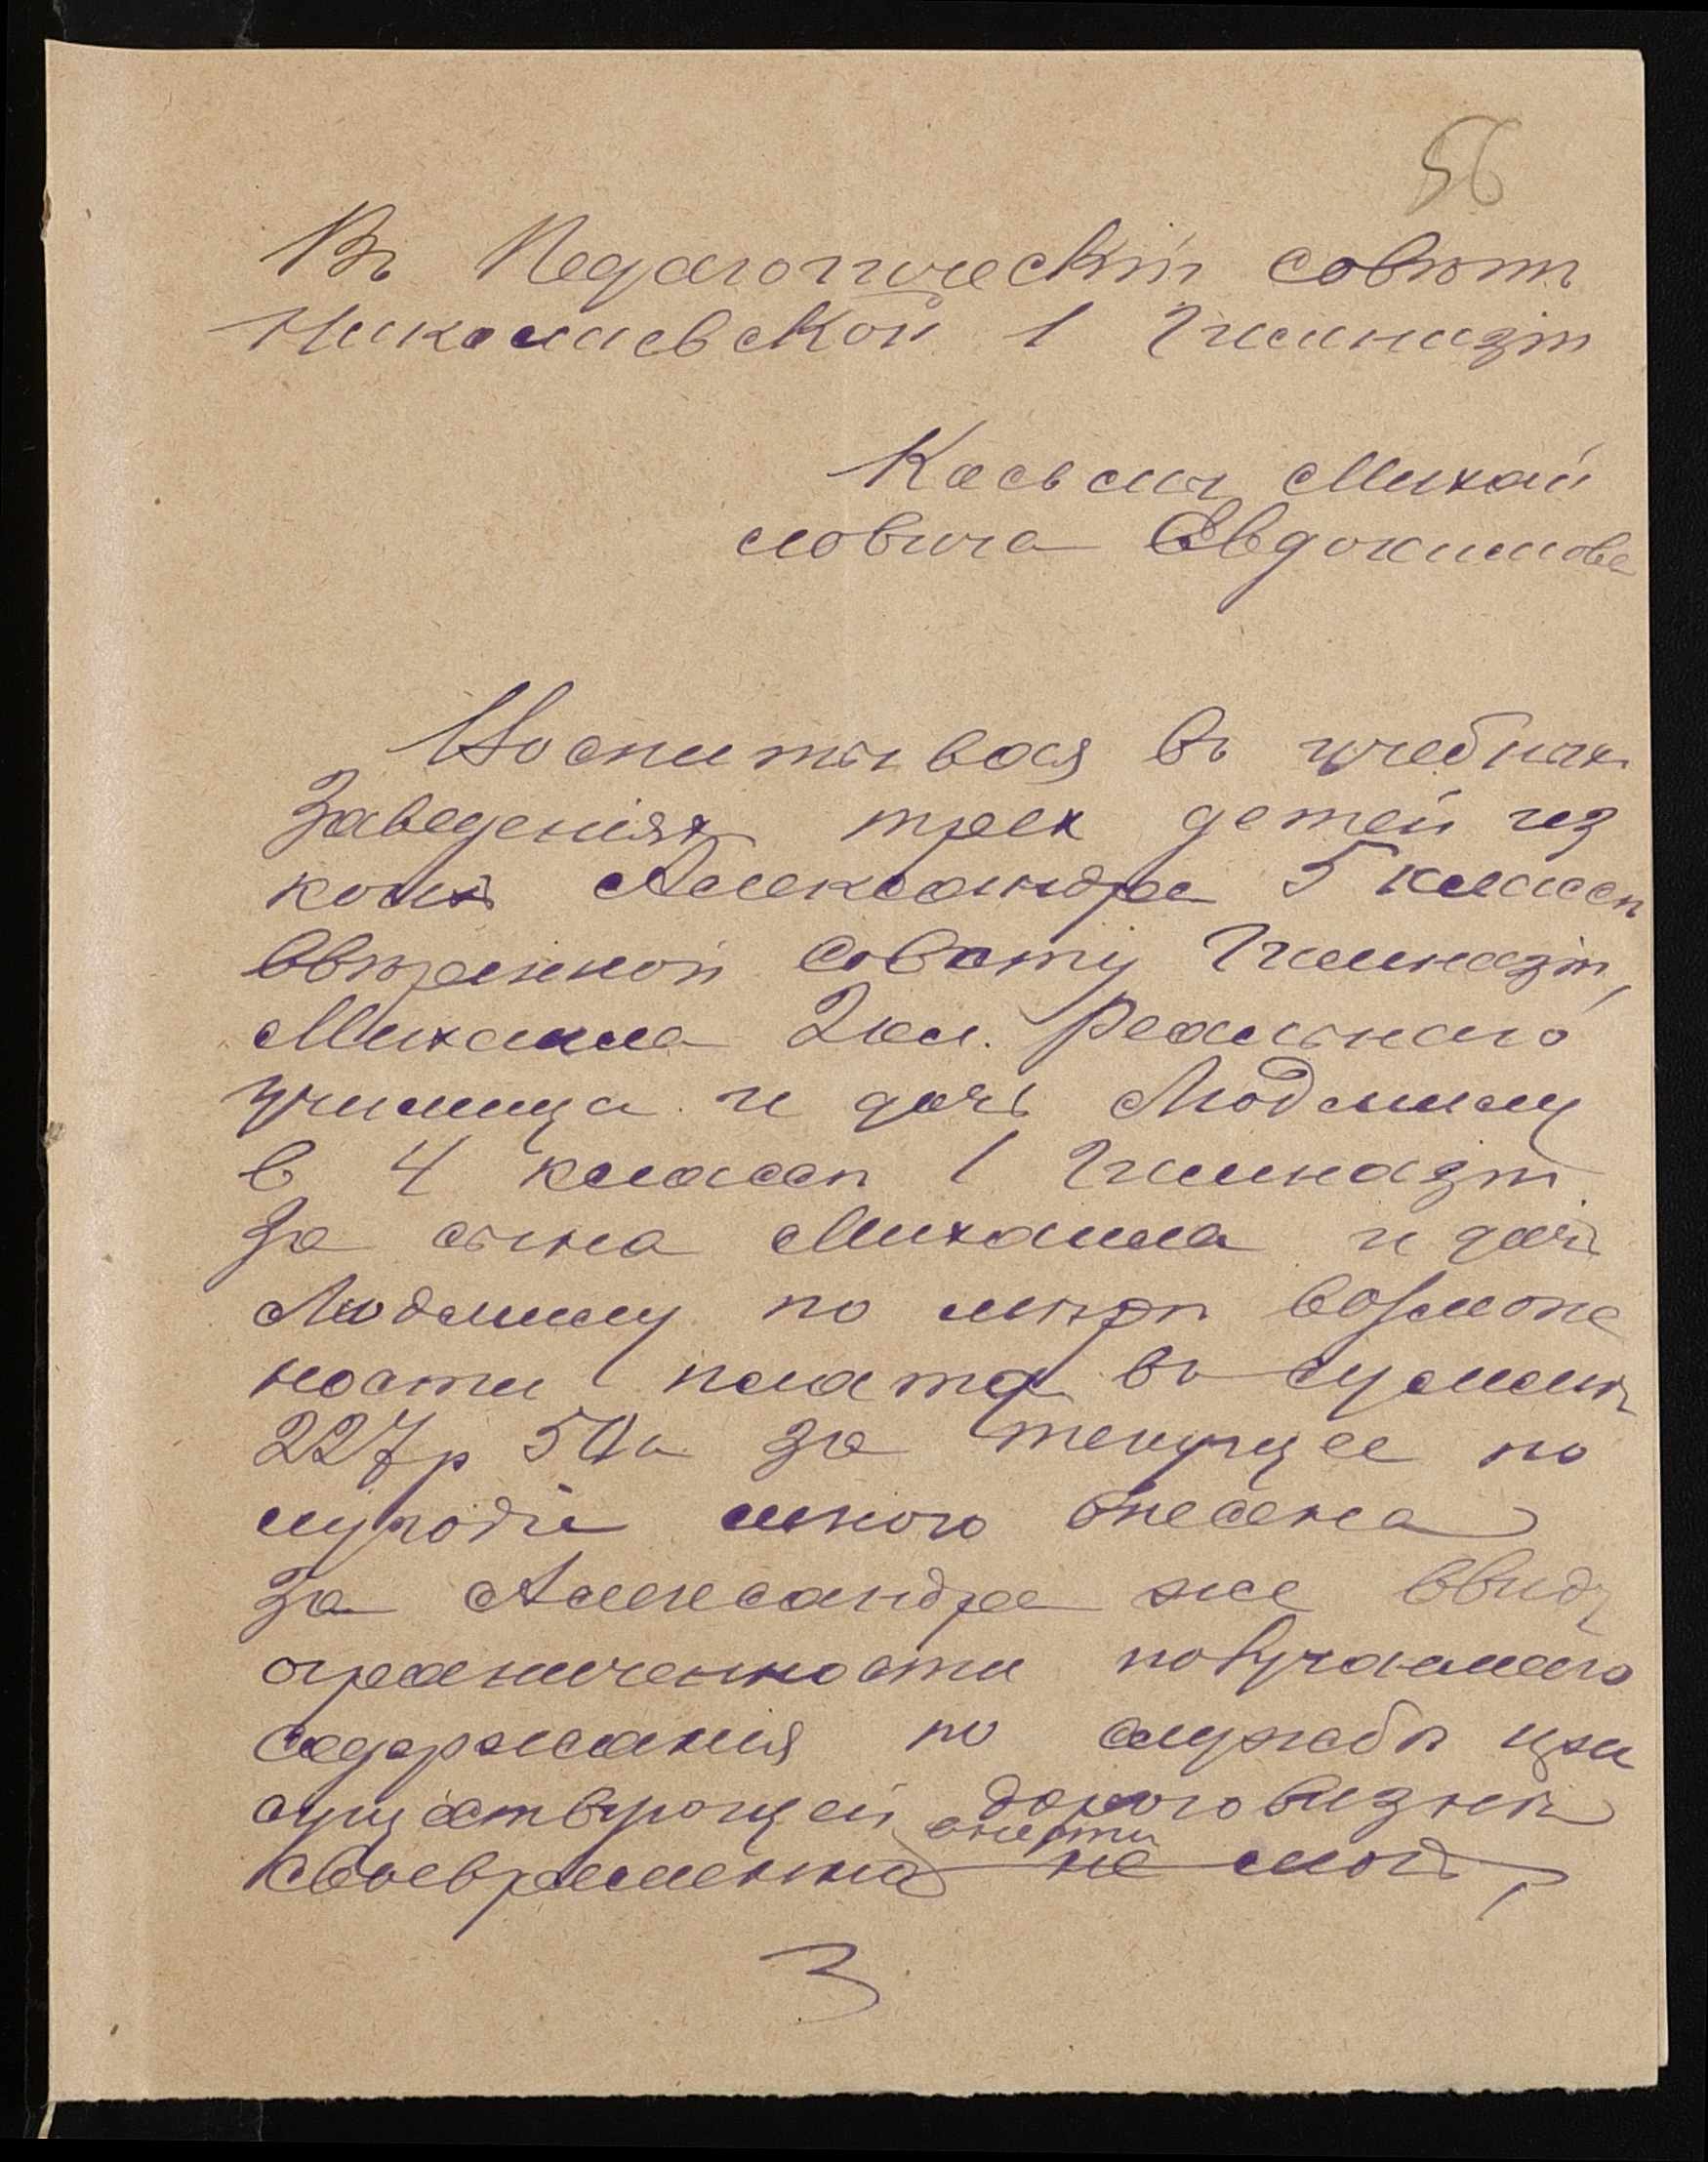 56
Въ Педагогическій совѣтъ
Николаевской 1 Гимназіи
Касьяна Михай
ловича Евдокимова
Воспитывая въ учебныхъ
заведеніяхъ трех детей из
коихъ Александра 5 классѣ
ввѣренной Совету Гимназіи,
Михаила 2 кл. Реальнаго
училища и дочь Людмилу
в 4 классѣ 1 Гимназіи
За сына Михаила и дочь
Людмилу по мѣрѣ возмож
ности плата въ суммѣ
227р 50к за текущее по
лугодіе мною внесена
За Александра же ввиду
ограниченности получаемаго
содержанія по службѣ при
существующей дороговизнѣ
внести
своевременно не могъ,